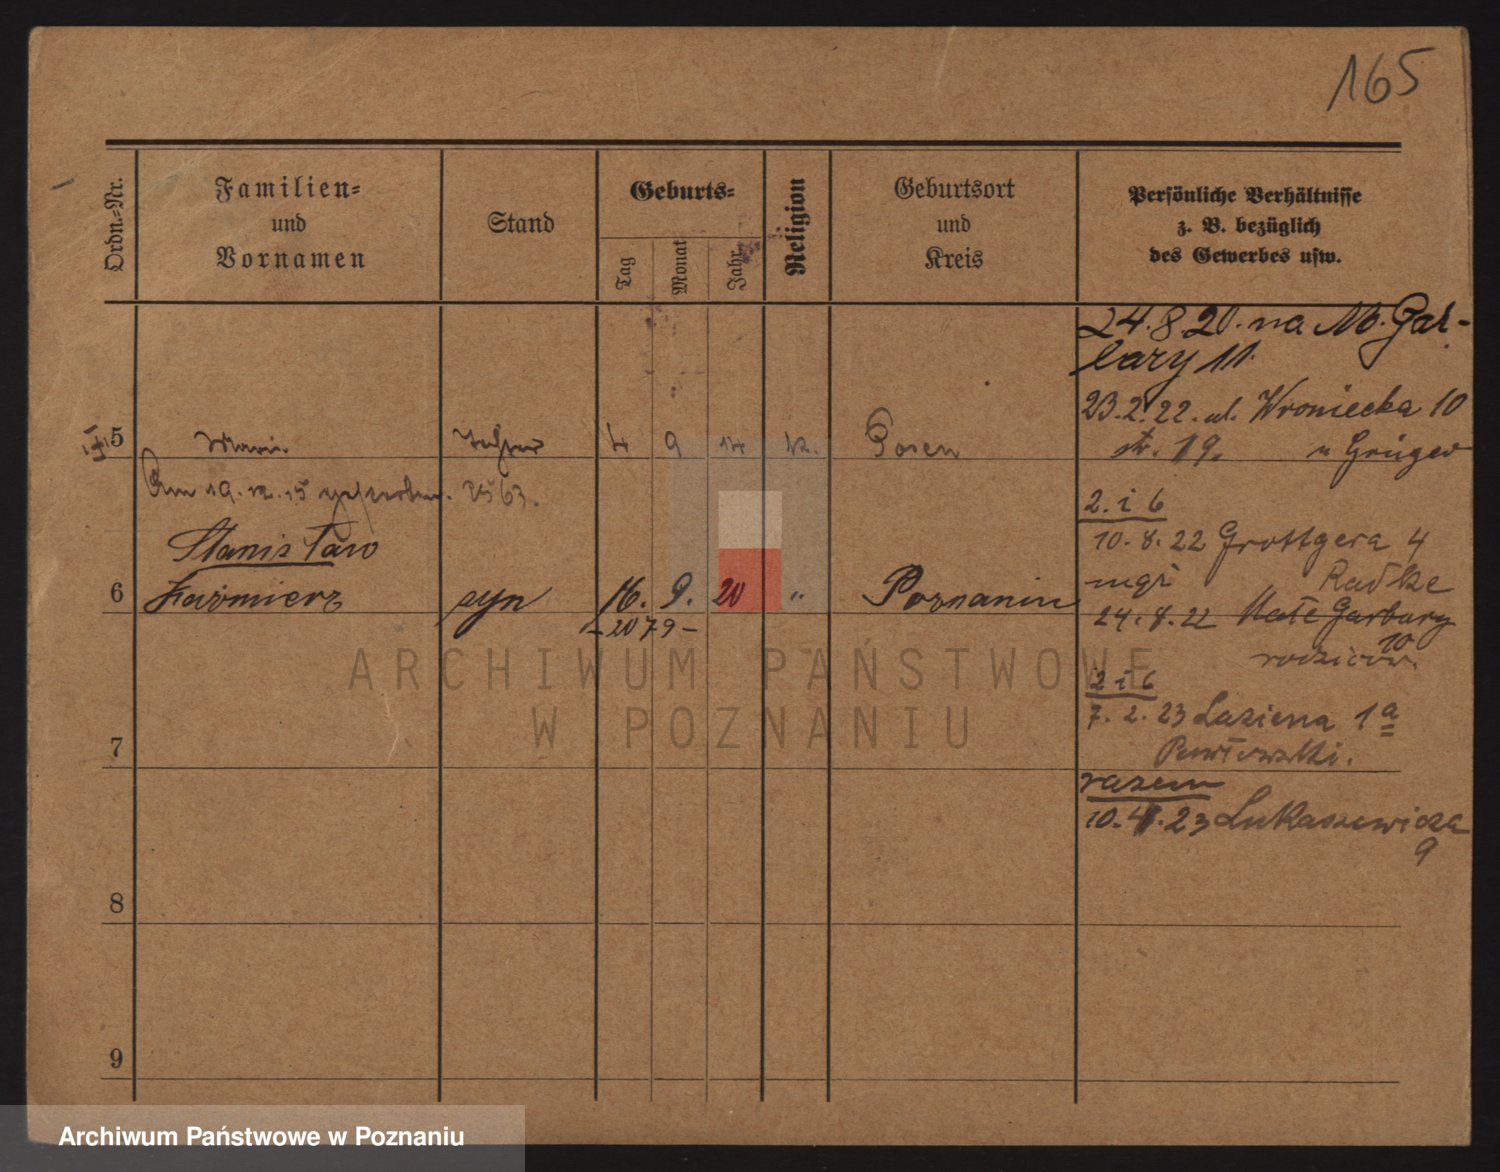 165
Ordn.-Nr.
Familien-
und
Vornamen
Stand
Geburts-
Tag
Monat
Jahr
Religion
Geburtsort
und
Kreis
Persönliche Verhältnisse
z. B. bezüglich
des Gewerbes usw.
24.8.20. na M. Gar-
bary 11.
23.2.22. ul. Wroniecka 10
5 Posen
19.
Am 19.12.15 2563.
2. i 6
Stanisław
10.8.22 Grottgera 4
6 Kazimierz syn 16. 9. 20 " Poznaniu
Radtke
- 2079 -
24.8.22 Małe Garbary
10
rodziców.
2 i 6
7 7.2.23 Łazienna 1a
razem
10.4.23 Łukaszewicza
9
8
9
ARCHIWUM PAŃSTWOWE
W POZNANIU
Archiwum Państwowe w Poznaniu